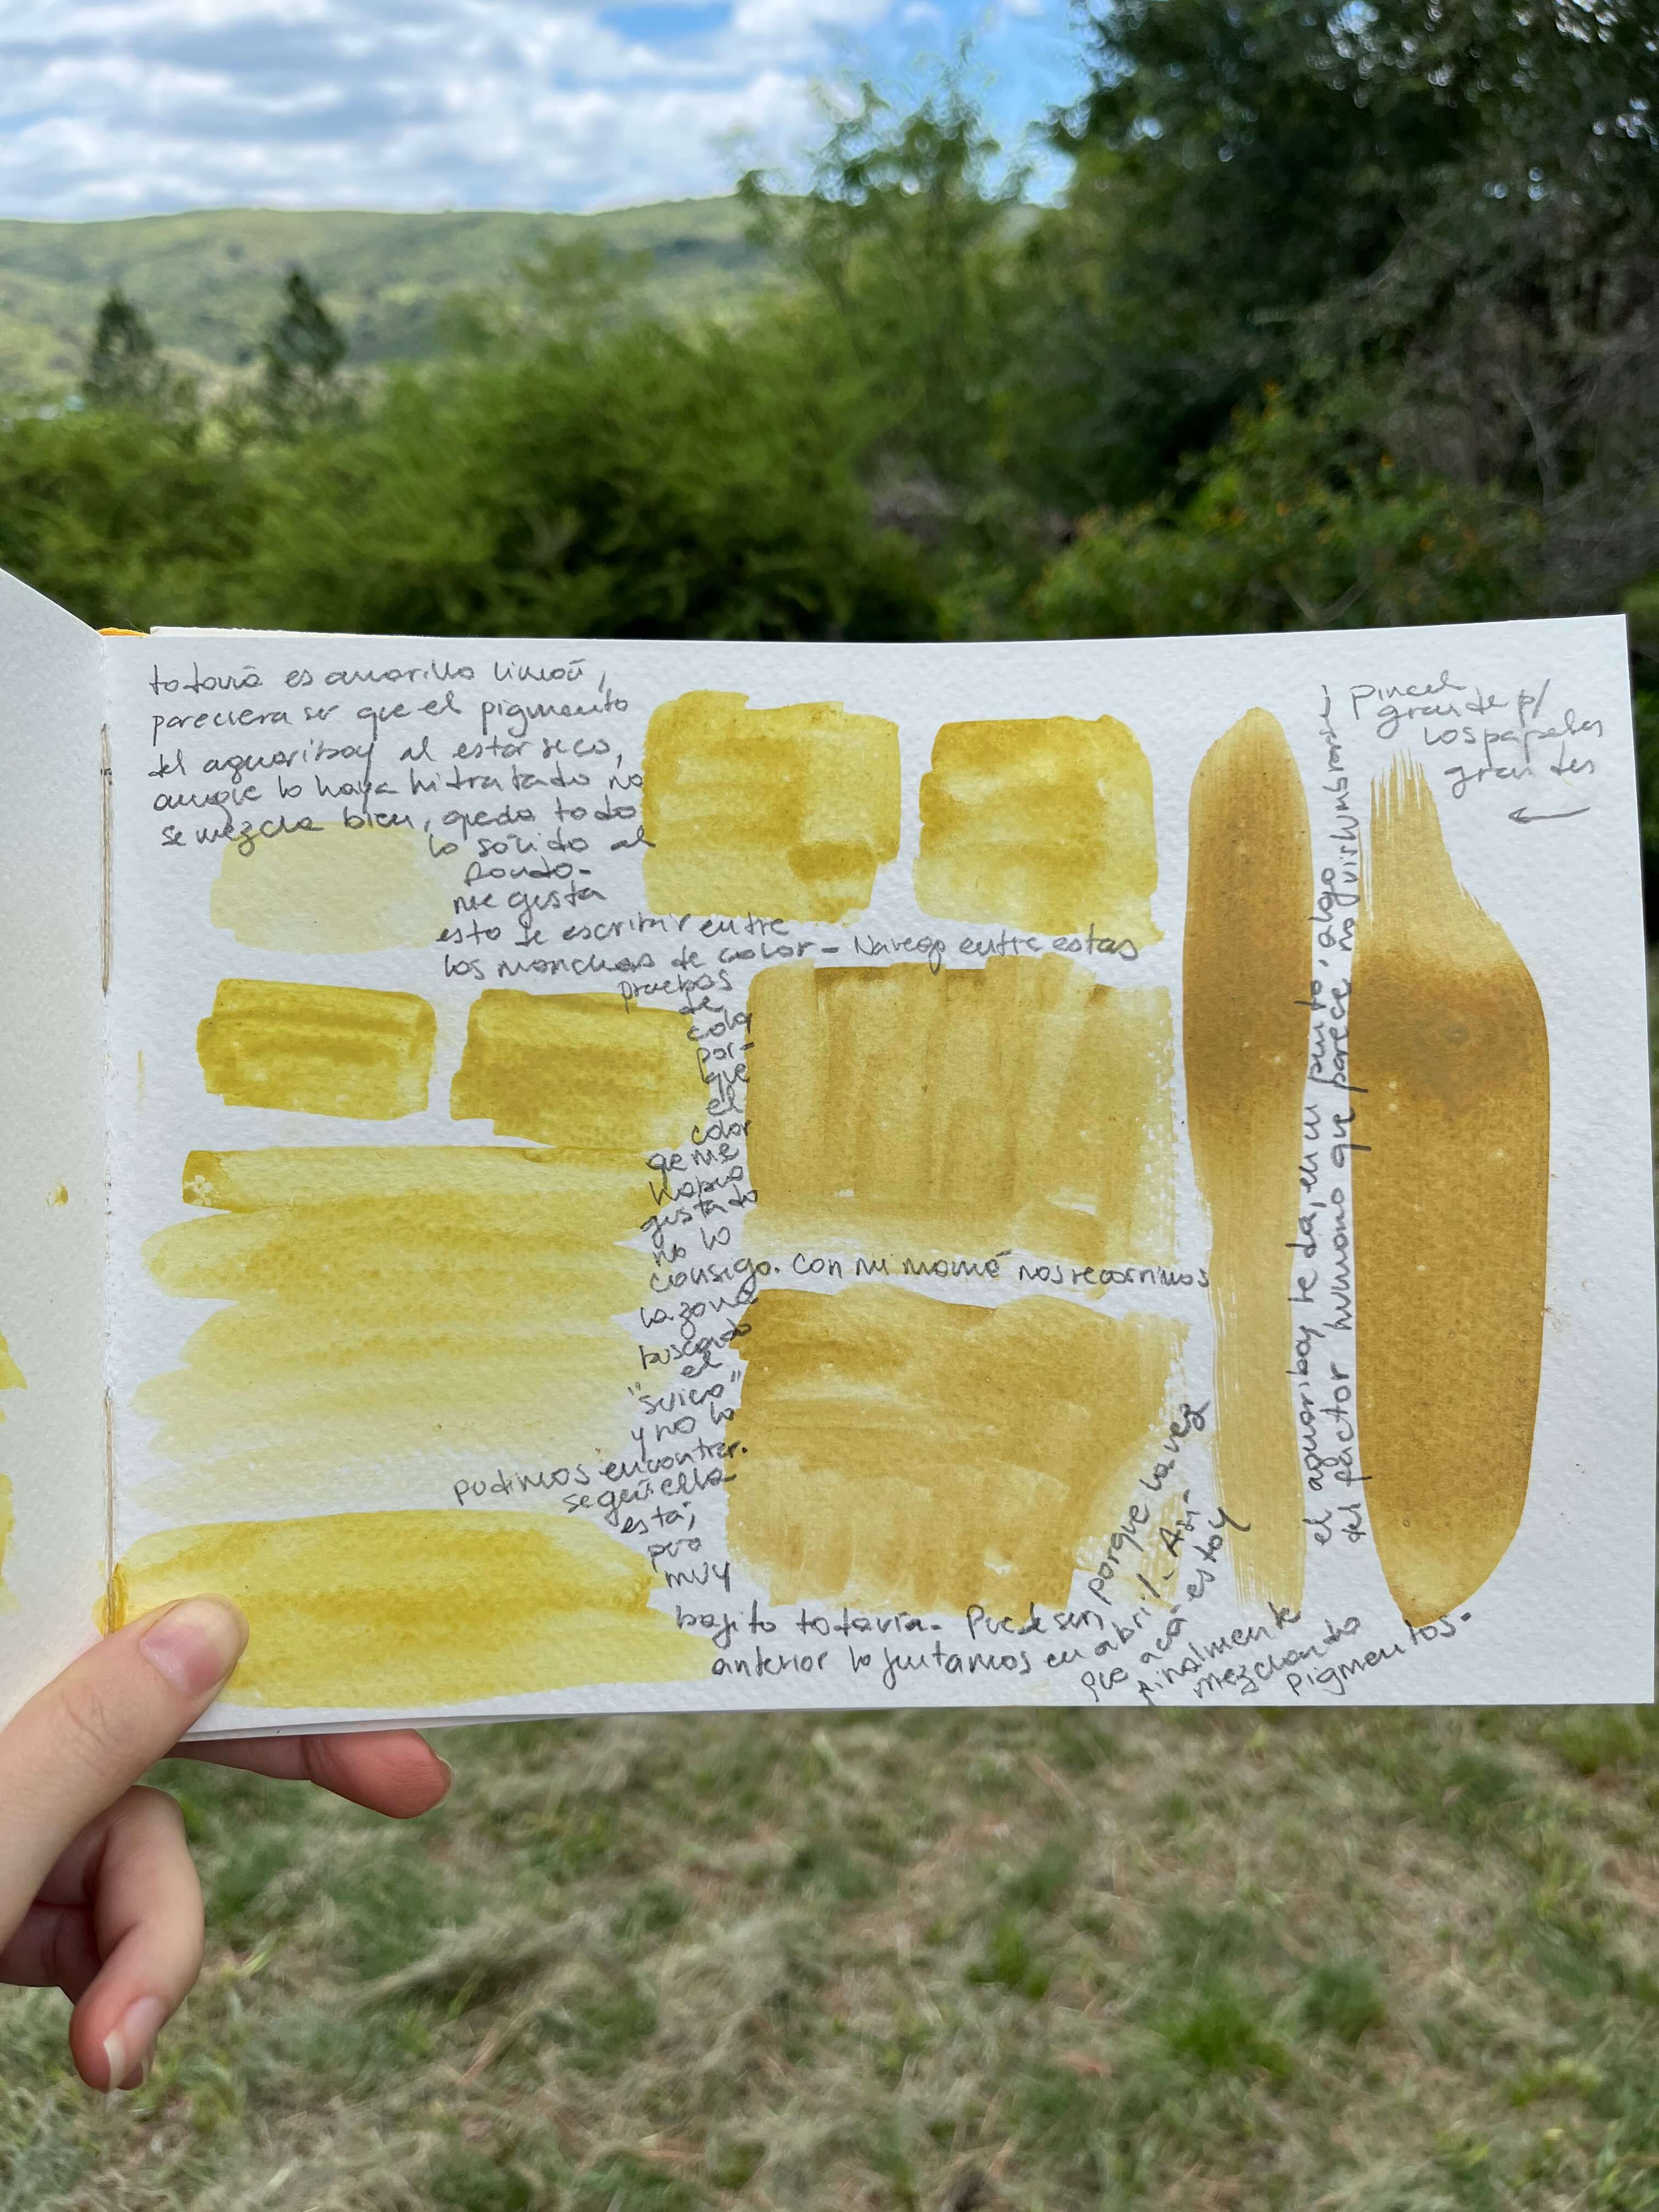 todavía es amarillo limón,
pareciera ser que el pigmento
del aguaribay al estar seco,
aunqe lo haya hidratado no
se mezcla bien, queda todo
lo sólido al
fondo-
me gusta
esto de escribir entre
las manchas de color- Navego entre estas
pruebas
de
color
por-
que
el
color
qe me
había
gustado
no lo
consigo. Con mi mamá nos recorrimos
la zona
buscando
el
"suico"
y no lo
pudimos encontrar.
según ella
está;
pero
muy
bajito todavía- Puede ser, porque la vez
anterior lo juntamos en abril- Así-
que acá estoy
finalmente
mezclando
pigmentos-
el aguaribay te da, en un punto, algo
del factor humano que parece no vislumbrarse
Pincel
grande p/
los papeles
grandes
←